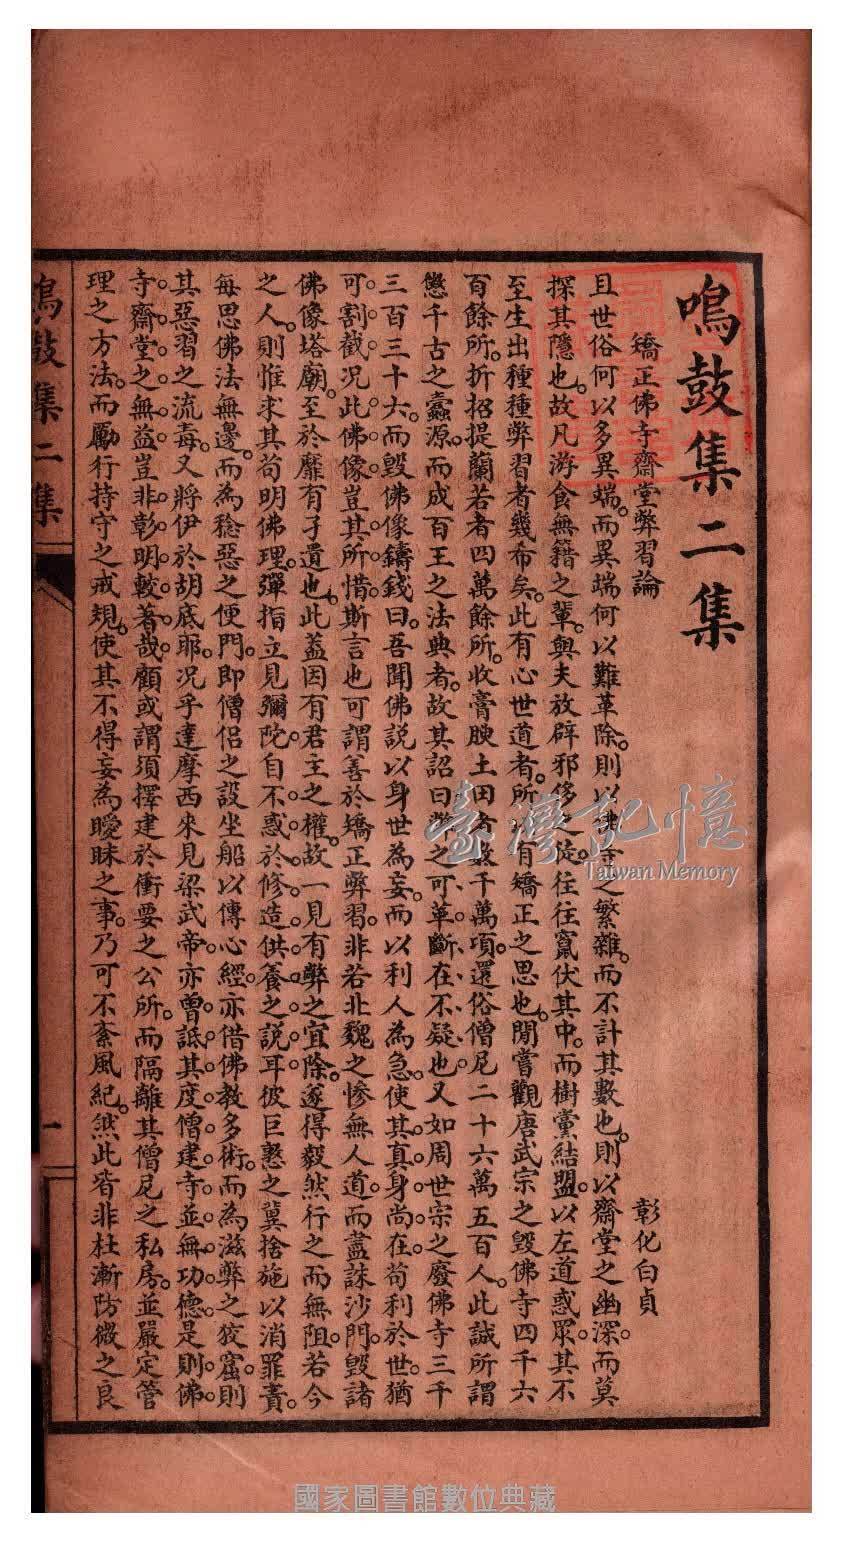 鳴鼓集二集
矯正佛寺齋堂弊習論　彰化白貞
且世俗何以多異端。而異端何以難革除。則以佛寺之繁雜。而不計其數也。則以齋堂之幽深。而莫
探其隱也。故凡游食無籍之輩。與夫放辟邪侈之徒。往往竄伏其中。而樹黨結盟。以左道惑眾。其不
至生出種種弊習者幾希矣。此有心世道者。所以有矯正之思也。閒嘗觀唐武宗之毀佛寺四千六
百餘所。折招提蘭若者四萬餘所。收膏腴土田者數千萬項。還俗僧尼二十六萬五百人。此誠所謂
懲千古之蠹源。而成百王之法典者。故其詔曰弊之可革。斷在不疑也。又如周世宗之廢佛寺三千
三百三十六。而毀佛像鑄錢曰。吾聞佛說以身世為妄。而以利人為急。使其真身尚在。苟利於世。猶
可割截。況此佛像豈其所惜。斯言也可謂善於矯正弊習。非若北魏之慘無人道。而盡誅沙門。毀諸
佛像塔廟。至於靡有孑遺也。此蓋因有君主之權。故一見有弊之宜除。遂得毅然行之而無阻。若今
之人。則惟求其苟明佛理。彈指立見彌陀。自不惑於修造供養之說耳。彼巨憝之冀捨施以消罪責。
每思佛法無邊。而為稔惡之便門。即僧侶之設坐船以傳心經。亦借佛教多術。而為滋弊之狡窟。則
其惡習之流毒。又將伊於胡底耶。況乎達摩西來見梁武帝。亦曾詆其度僧建寺並無功德。是則佛
寺齋堂之無益。豈非彰明較著哉。顧或謂須擇建於衝要之公所。而隔離其僧尼之私房。並嚴定管
理之方法。而勵行持守之戒規。使其不得妄為曖昧之事。乃可不紊風紀。然此皆非杜漸防微之良
鳴鼓集二集
一
臺灣記憶
Taiwan Memory
國家圖書館數位典藏